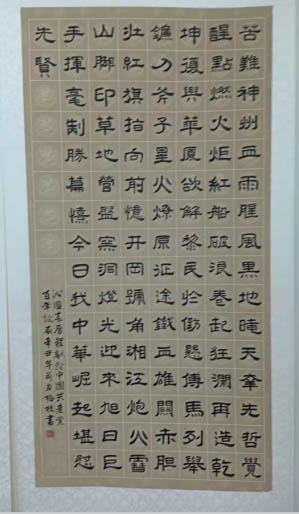 苦難神州血雨腥風黑地晻天幸先哲覺
醒點燃火炬紅船破浪卷起狂瀾再造乾
坤復興華厦欲解黎民於倒懸傳馬列舉
鐮刀斧子星火燎原征途鐵血雄關赤胆
壯紅旗指向前憶井岡號角湘江炮火雪
山腳印草地營盤窯洞燈光迎來旭日巨
手揮毫制勝篇慎今日我中華崛起堪慰
先賢
沁園春 獻給中國共産黨
百年誕辰辛丑年 書